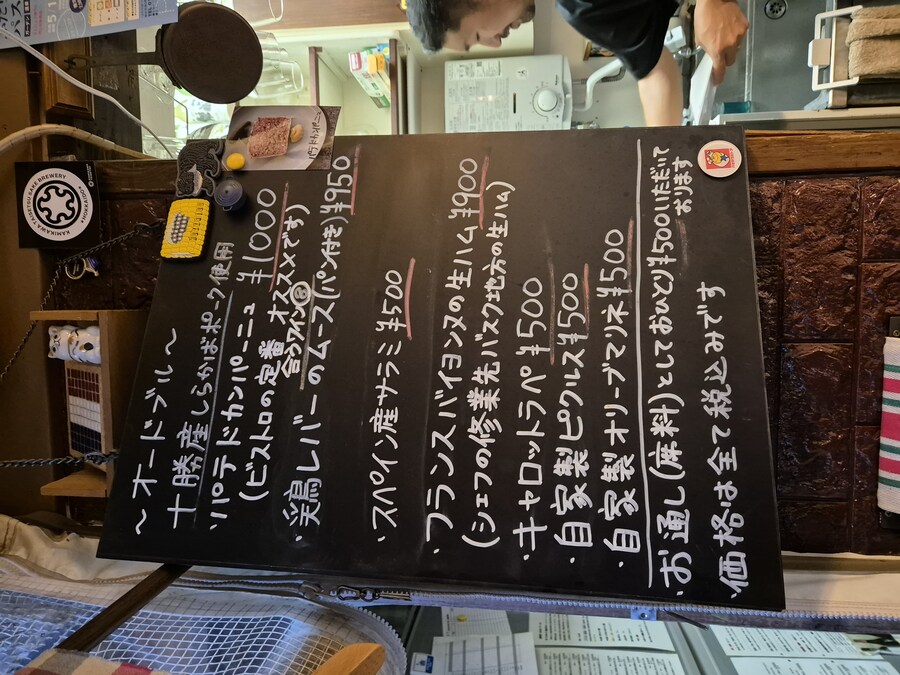 KAMIKAWA TAISETSU SAKE BREWERY
HOKKAIDO
～オードブル～
十勝産しらかばポーク使用
・パテドカンパーニュ ¥1000
(ビストロの定番 オススメです)
合うワイン
・鶏レバーのムース(パン付き) ¥950
・スペイン産サラミ ¥500
・フランスバイヨンヌの生ハム ¥900
(シェフの修業先バスク地方の生ハム)
・キャロットラペ ¥500
・自家製ピクルス ¥500
・自家製オリーブマリネ ¥500
・お通し(席料)としておひとり¥500いただいて
おります
・価格は全て税込みです
パテドカンパーニュ